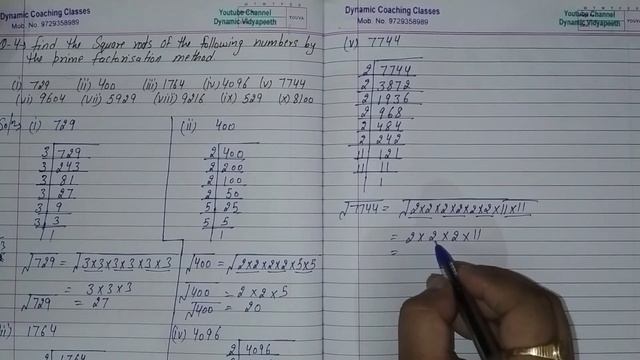 Dynamic Coaching Classes
Mob. No. 9729358989
Youtube Channel
Dynamic Vidyapeeth
YOUVA
Q-4 find the Square roots of the following numbers by
the prime factorisation method.
(i) 729 (ii) 400 (iii) 1764 (iv) 4096 (v) 7744
(vi) 9604 (vii) 5929 (viii) 9216 (ix) 529 (x) 8100
Soln (i) 729
3 729
3 243
3 81
3 27
3 9
3 3
1
√729 = √3×3×3×3×3×3
= 3×3×3
√729 = 27
1764
(ii) 400
2 400
2 200
2 100
2 50
5 25
5 5
1
√400 = √2×2×2×2×5×5
√400 = 2×2×5
√400 = 20
(iv) 4096
2 4096
Dynamic Coaching Classes
Mob. No. 9729358989
Youtube Channel
Dynamic Vidyapeeth
(v) 7744
2 7744
2 3872
2 1936
2 968
2 484
2 242
11 121
11 11
1
√7744 = √2×2×2×2×2×2×11×11
= 2×2×2×11
=